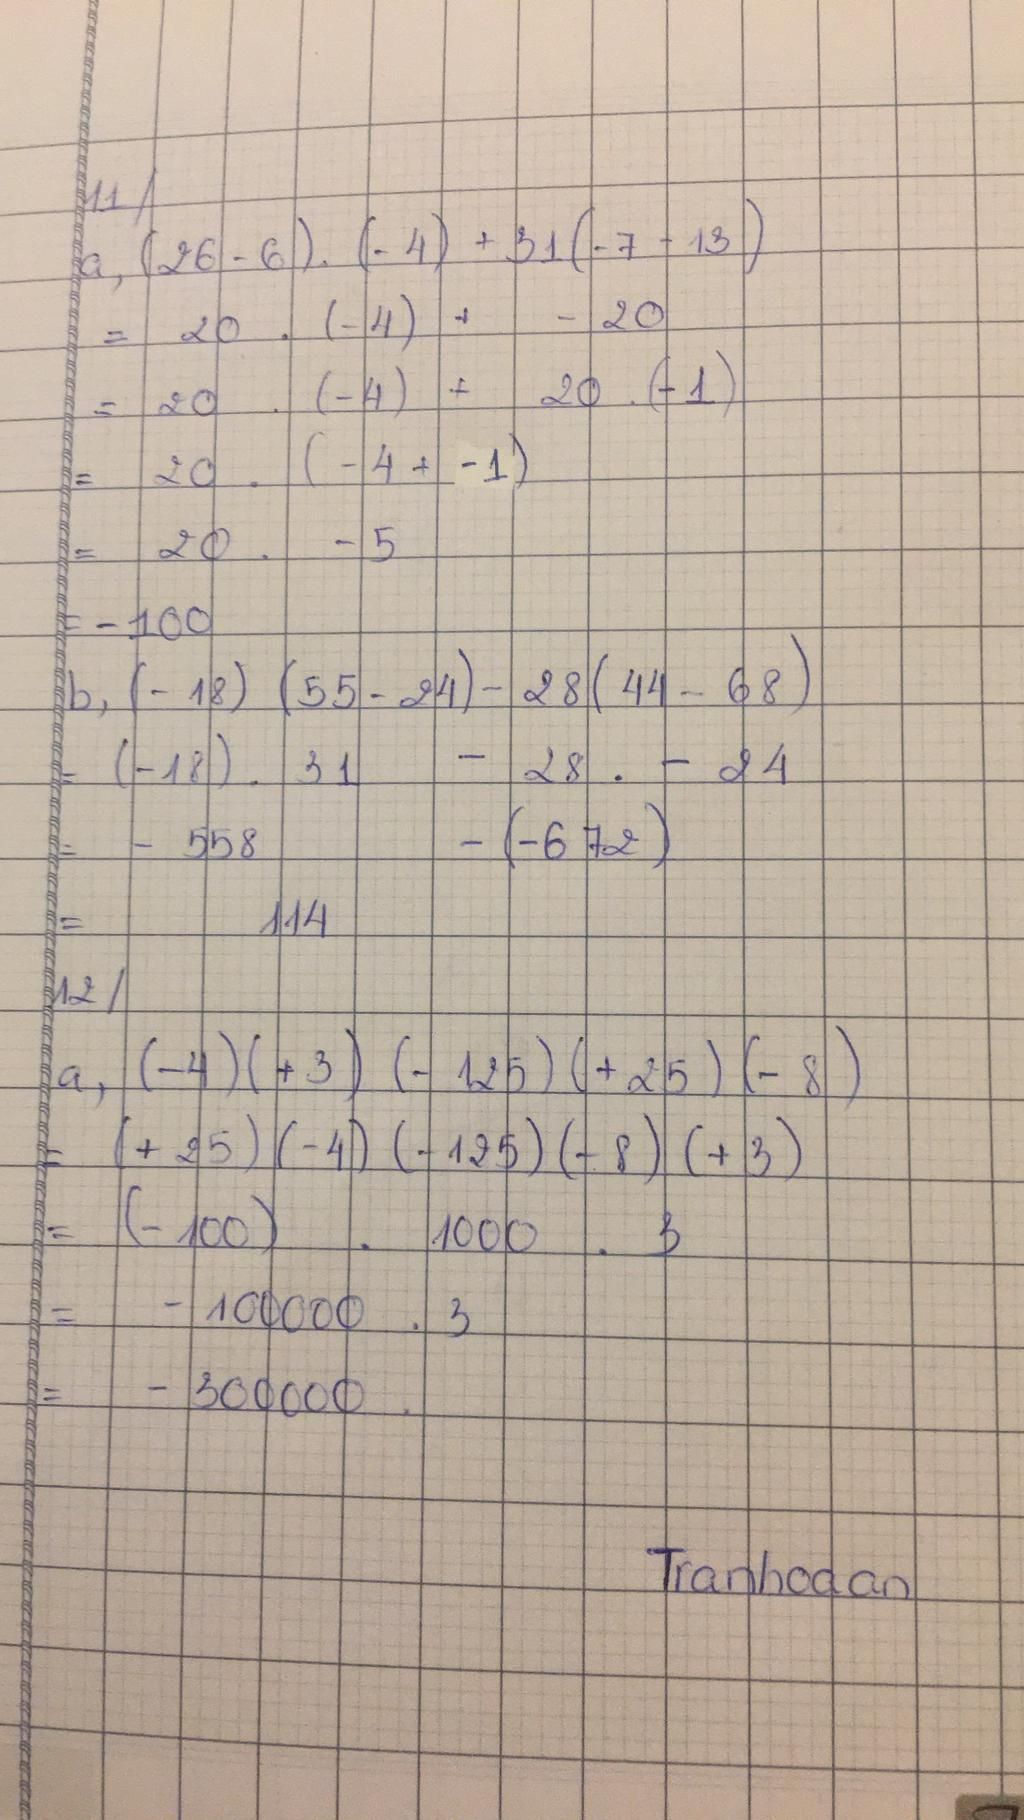 11/
a, (26 - 6) . (-4) + 31 (-7 - 13)
= 20 . (-4) + - 20
= 20 . (-4) + 20 . (-1)
= 20 . (-4 + -1)
= 20 . -5
= -100
b, (-18) (55 - 24) - 28 (44 - 68)
= (-18) . 31 - 28 . - 24
= - 558 - (-672)
= 114
12/
a, (-4) (+3) (- 125) (+25) (- 8)
= (+ 25) (-4) (-125) (-8) (+3)
= (-100) . 1000 . 3
= - 100000 . 3
= - 300000 .
Tranhodan